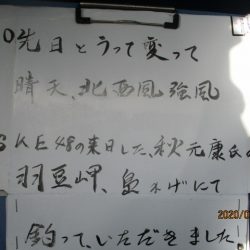 0先日とうって変って
晴天、北西風強風
SKE48の来日した、秋元康氏の
羽豆岬、島かげにて
釣って、いただきました!
2020/0